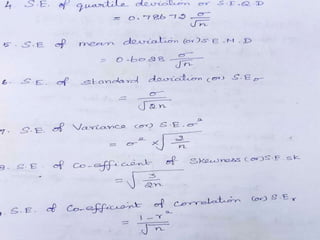 4. S.E. of quartile deviation or S.E.Q.D
= 0.78672 σ/√n
5. S.E of mean deviation (or) S.E.M.D
= 0.6028 σ/√n
6. S.E of standard deviation (or) S.Eσ
= σ/√2n
7. S.E. of Variance (or) S.E.σ²
= σ² × √2/n
8. S.E of Co-efficient of Skewness (or) S.E.SK
= √3/2n
S.E. of Co-efficient of correlation (or) S.E.r
= 1-r²/√n